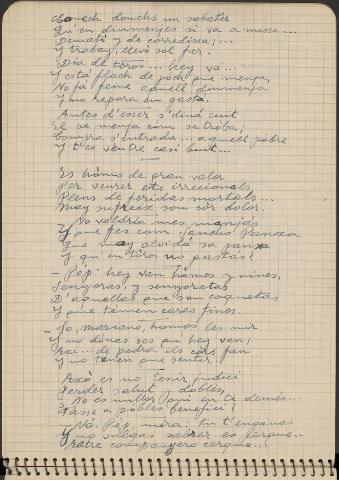 donchs un sabater
Qu'en diumenjes si va a missa...
Dematí y de corredissa;...
Y trabay, llevò sol fer.
Dia de tòros... hey va...
Y está flach de pòch que menja,
No fá feine aquell diumenja
Y no repara en gastá.
Antes d'esser s'diná cuit
El se menja com se tròba;
Compra s'entrada... aquell pobre
Y t'es ventre casi buit...
Es hòmo de gran valor
Per veurer ets irracionals
Plens de feridas mortals...
Muy sofreixe son
No valdría mes
Y que fes com Sancho Panxa
Que may olvidá sa panxa
Y qu'en tòros no pastás?
— Pép: hey van hòmos y nines,
Senyoras, y senyoretas
D'aquellas que son coquetas
Y que tenen cares fines.
— Jo, mariano, hòmos les mir
Y no dónas ses qu'hey van;
de pedra els còrs fan
Y no tenen que sentir.
Axò es no tenir judici
Perder salut, doblés,
No es millor qui en té demés...
Fasse a pobles benefici?
No, Pép, mira: tu t'enganas
Y no vulgas sabrer es perque...
companyero perque...!